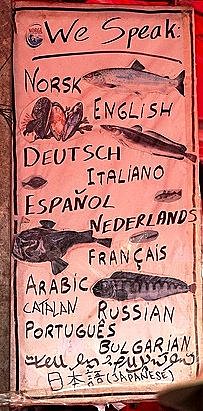 We Speak:
NORSK
ENGLISH
DEUTSCH
ITALIANO
ESPAÑOL
NEDERLANDS
FRANÇAIS
ARABIC
CATALAN
RUSSIAN
PORTUGUÊS
BULGARIAN
日本語 (JAPANESE)